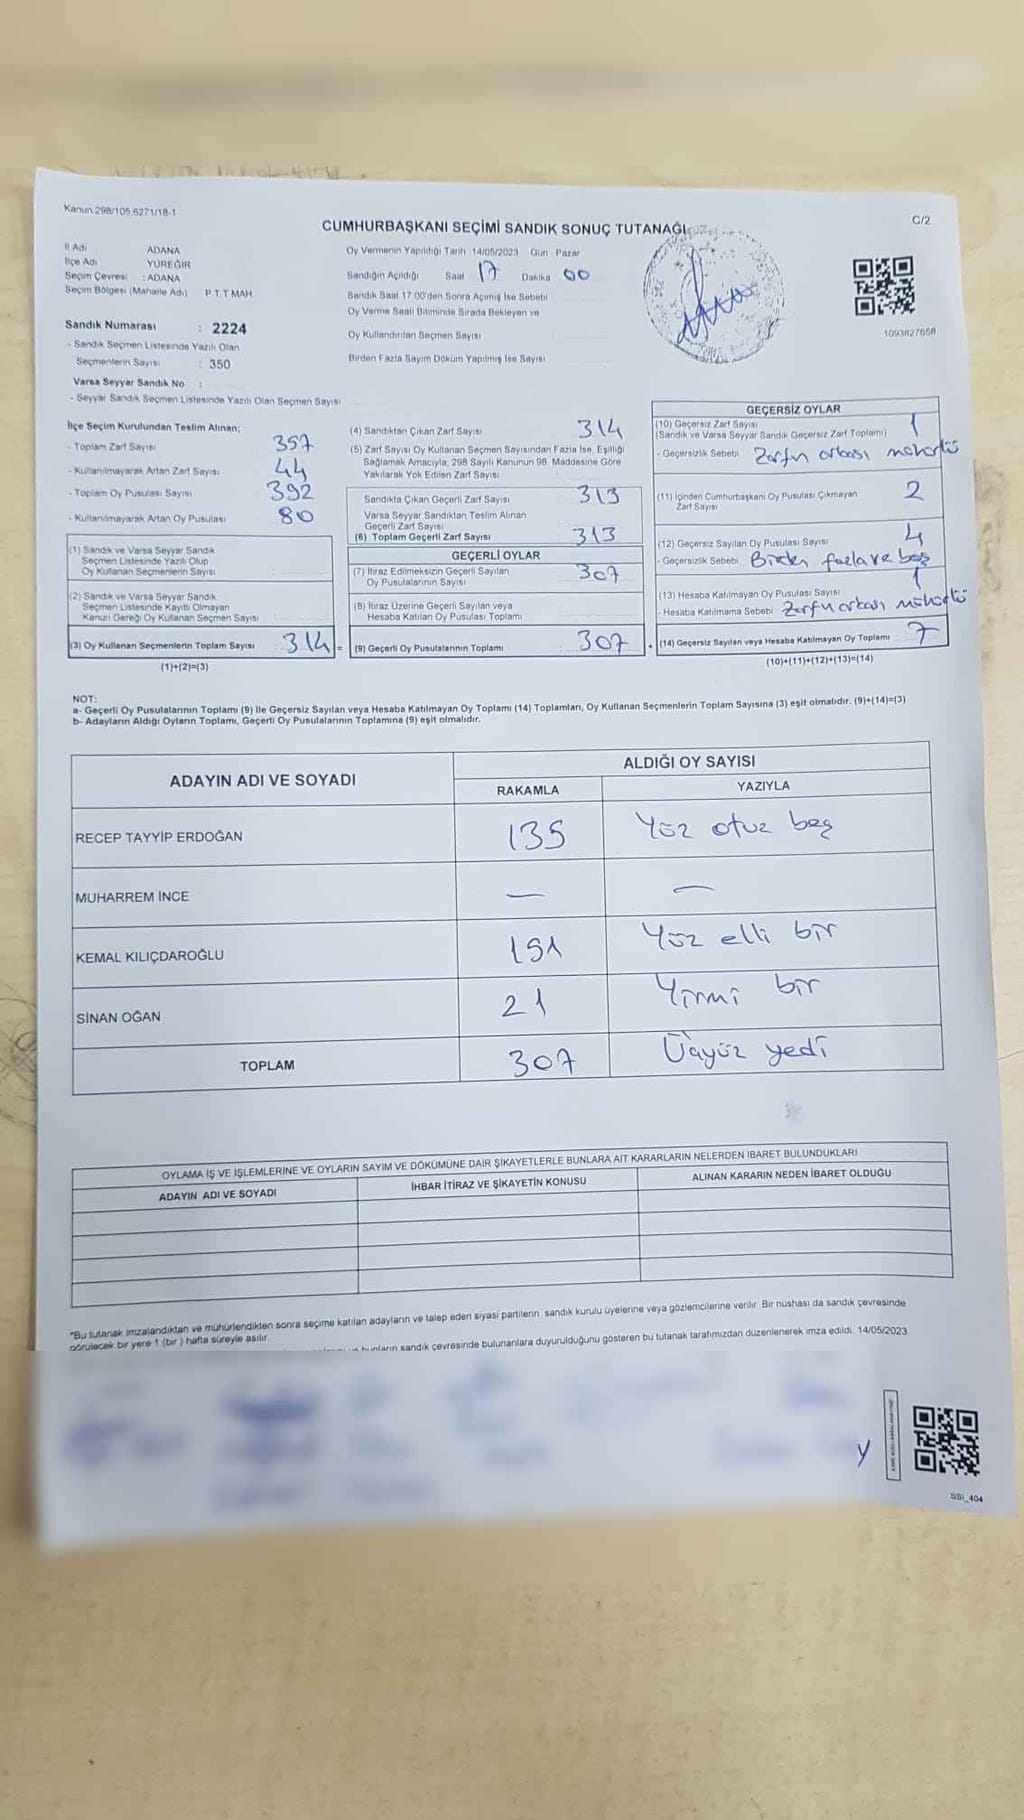 Kanun:298/105,6271/18-1
C/2
CUMHURBAŞKANI SEÇİMİ SANDIK SONUÇ TUTANAĞI
İl Adı ADANA
İlçe Adı YÜREĞİR
Seçim Çevresi : ADANA
Seçim Bölgesi (Mahalle Adı) P.T.T MAH
Sandık Numarası : 2224
- Sandık Seçmen Listesinde Yazılı Olan
Seçmenlerin Sayısı : 350
Varsa Seyyar Sandık No :
- Seyyar Sandık Seçmen Listesinde Yazılı Olan Seçmen Sayısı
Oy Vermenin Yapıldığı Tarih :14/05/2023 Gün : Pazar
Sandığın Açıldığı Saat 17 Dakika 00
Sandık Saat 17:00'den Sonra Açımış İse Sebebi
Oy Verme Saati Bitiminde Sırada Bekleyen ve
Oy Kullandırılan Seçmen Sayısı
Birden Fazla Sayım Döküm Yapılmış İse Sayısı
1093827658
İlçe Seçim Kurulundan Teslim Alınan;
- Toplam Zarf Sayısı 357
- Kullanılmayarak Artan Zarf Sayısı 44
- Toplam Oy Pusulası Sayısı 392
- Kullanılmayarak Artan Oy Pusulası 80
(1) Sandık ve Varsa Seyyar Sandık
Seçmen Listesinde Yazılı Olup
Oy Kullanan Seçmenlerin Sayısı
(2) Sandık ve Varsa Seyyar Sandık
Seçmen Listesinde Kayıtlı Olmayan
Kanun Gereği Oy Kullanan Seçmen Sayısı
(3) Oy Kullanan Seçmenlerin Toplam Sayısı 314 =
(1)+(2)=(3)
(4) Sandıktan Çıkan Zarf Sayısı 314
(5) Zarf Sayısı Oy Kullanan Seçmen Sayısından Fazla İse, Eşitliği
Sağlamak Amacıyla, 298 Sayılı Kanunun 98. Maddesine Göre
Yakılarak Yok Edilen Zarf Sayısı
Sandıkta Çıkan Geçerli Zarf Sayısı 313
Varsa Seyyar Sandıktan Teslim Alınan
Geçerli Zarf Sayısı
(6) Toplam Geçerli Zarf Sayısı 313
GEÇERLİ OYLAR
(7) İtiraz Edilmeksizin Geçerli Sayılan
Oy Pusulalarının Sayısı 307
(8) İtiraz Üzerine Geçerli Sayılan veya
Hesaba Katılan Oy Pusulası Toplamı
(9) Geçerli Oy Pusulalarının Toplamı 307 +
GEÇERSİZ OYLAR
(10) Geçersiz Zarf Sayısı 1
(Sandık ve Varsa Seyyar Sandık Geçersiz Zarf Toplamı)
- Geçersizlik Sebebi Zarfın arkası mühürlü
(11) İçinden Cumhurbaşkanı Oy Pusulası Çıkmayan 2
Zarf Sayısı
(12) Geçersiz Sayılan Oy Pusulası Sayısı 4
- Geçersizlik Sebebi Birden fazla ve boş
(13) Hesaba Katılmayan Oy Pusulası Sayısı 1
- Hesaba Katılmama Sebebi Zarfın arkası mühürlü
(14) Geçersiz Sayılan veya Hesaba Katılmayan Oy Toplamı 7
(10)+(11)+(12)+(13)=(14)
NOT:
a- Geçerli Oy Pusulalarının Toplamı (9) İle Geçersiz Sayılan veya Hesaba Katılmayan Oy Toplamı (14) Toplamları, Oy Kullanan Seçmenlerin Toplam Sayısına (3) eşit olmalıdır. (9)+(14)=(3)
b- Adayların Aldığı Oyların Toplamı, Geçerli Oy Pusulalarının Toplamına (9) eşit olmalıdır.
ADAYIN ADI VE SOYADI ALDIĞI OY SAYISI
RAKAMLA YAZIYLA
RECEP TAYYİP ERDOĞAN 135 Yüz otuz beş
MUHARREM İNCE — —
KEMAL KILIÇDAROĞLU 151 Yüz elli bir
SİNAN OĞAN 21 Yirmi bir
TOPLAM 307 Üçyüz yedi
OYLAMA İŞ VE İŞLEMLERİNE VE OYLARIN SAYIM VE DÖKÜMÜNE DAİR ŞİKAYETLERLE BUNLARA AİT KARARLARIN NELERDEN İBARET BULUNDUKLARI
ADAYIN ADI VE SOYADI İHBAR İTİRAZ VE ŞİKAYETİN KONUSU ALINAN KARARIN NEDEN İBARET OLDUĞU
*Bu tutanak imzalandıktan ve mühürlendikten sonra seçime katılan adayların ve talep eden siyasi partilerin sandık kurulu üyelerine veya gözlemcilerine verilir. Bir nüshası da sandık çevresinde
görülecek bir yere 1 (bir ) hafta süreyle asılır.
bunların sandık çevresinde bulunanlara duyurulduğunu gösteren bu tutanak tarafımızdan düzenlenerek imza edildi. 14/05/2023
SSI_404